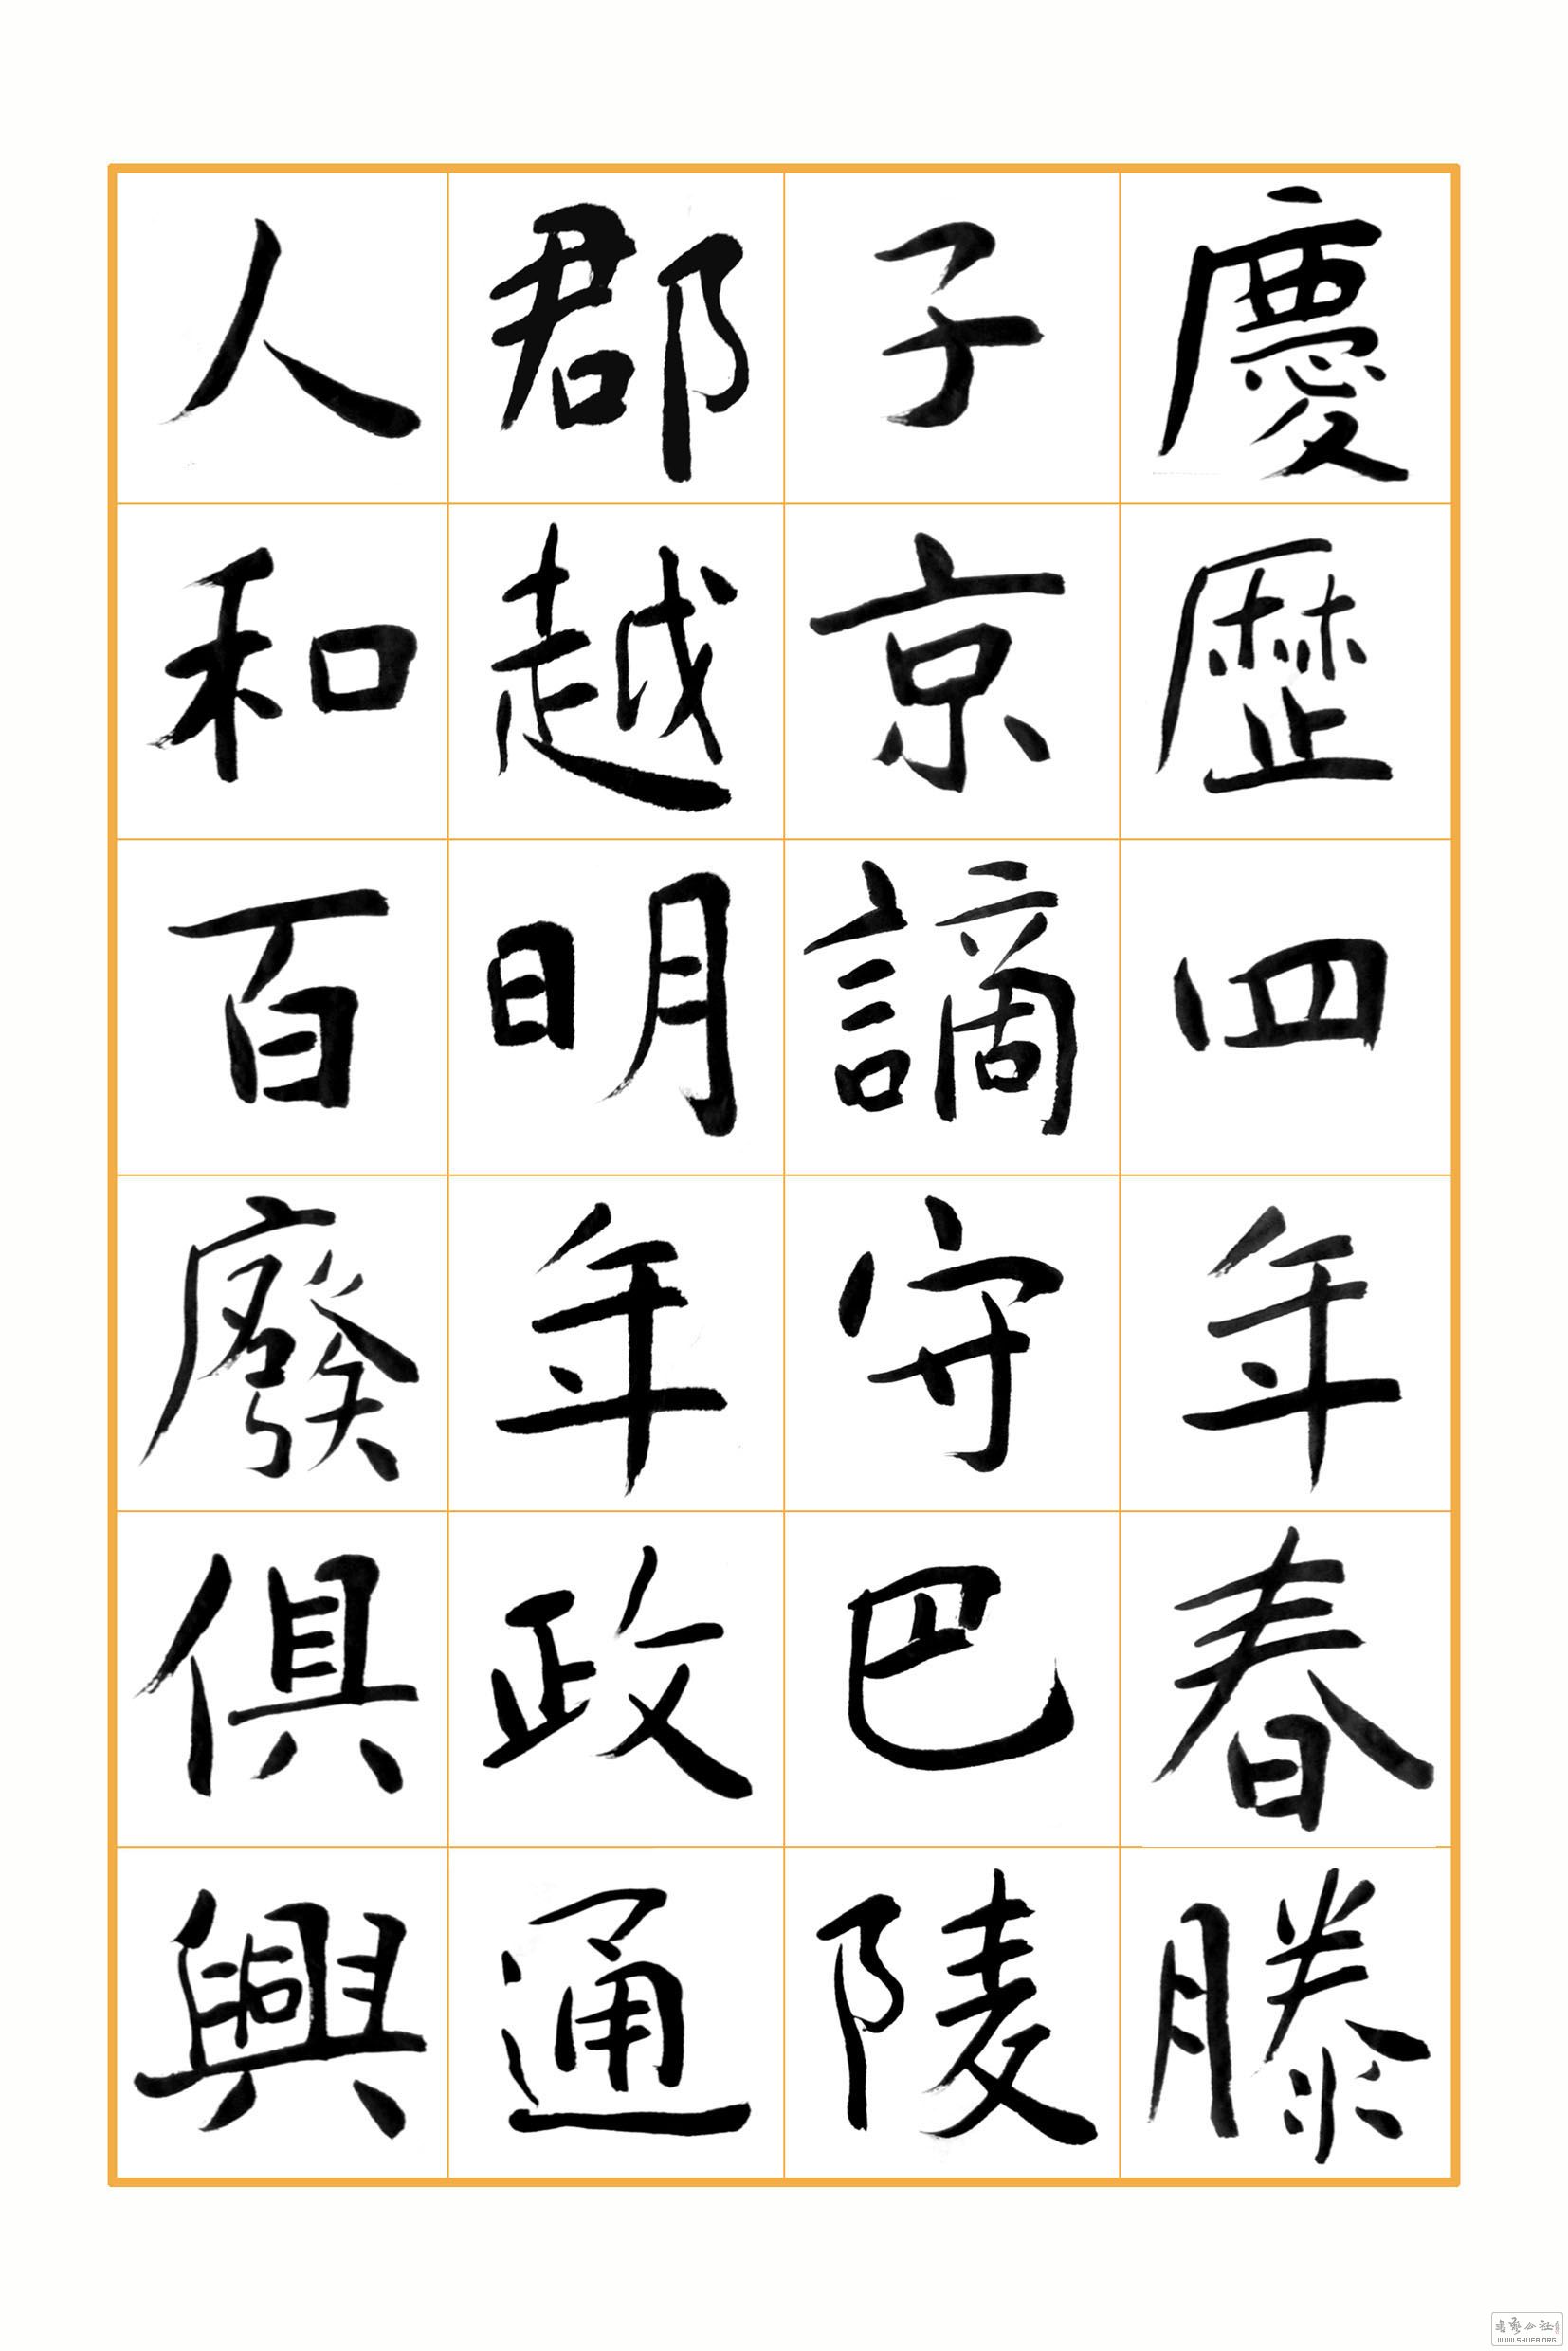 慶歷四年春滕
子京謫守巴陵
郡越明年政通
人和百廢俱興
WWW.SHUFA.ORG